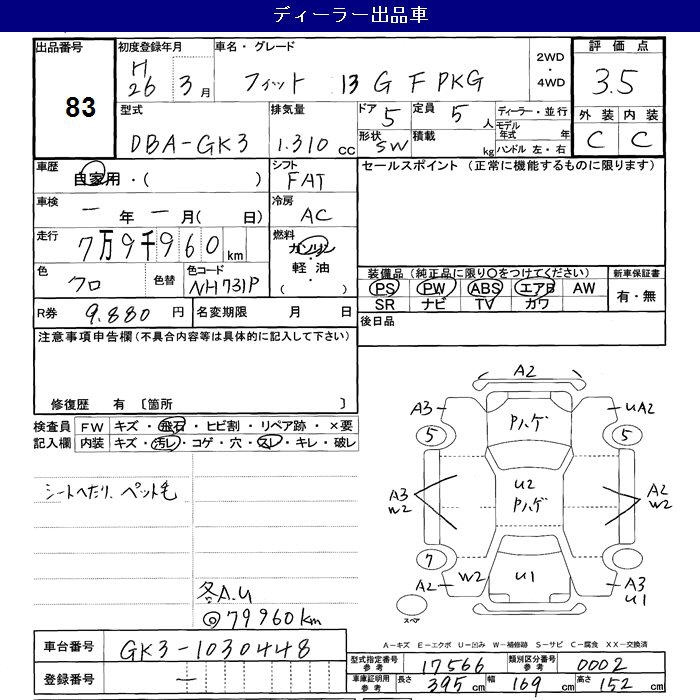 ディーラー出品車
出品番号 初度登録年月 車名・グレード 2WD・4WD 評価点
83 H26 3月 フィット 13 G F PKG 3.5
型式 排気量 ドア 5 定員 5人 ディーラー・並行 外装 内装
DBA-GK3 1.310 cc 形状 SW 積載 kg モデル年式 年 C C
ハンドル 左・右
車歴 自家用・( ) シフト FAT セールスポイント (正常に機能するものに限ります)
車検 一年一月( 日) 冷房 AC
走行 7万9千960km 燃料 ガソリン・軽油・( )
色 クロ 色替 色コード NH731P
装備品 (純正品に限り○をつけてください) 新車保証書
PS PW ABS エアB AW 有・無
SR ナビ TV カワ
R券 9.880円 名変期限 月 日 後日品
注意事項申告欄 (不具合内容等は具体的に記入して下さい)
修復歴 有 〔箇所 〕
検査員記入欄 FW キズ・飛石・ヒビ割・リペア跡・×要
内装 キズ・汚レ・コゲ・穴・スレ・キレ・破レ
シートへたり、ペット毛
各A.U
◎79960km
A2
A3 Pハゲ UA2
5 5
A3 W2 U2 Pハゲ A2 W2
7
A2 W2 U1 A3 U1
スペア
A－キズ E－エクボ U－凹み W－補修跡 S－サビ C－腐食 XX－交換済
車台番号 GK3-1030448
登録番号 —
型式指定番号 参考 17566 類別区分番号 参考 0002
車庫証明用 参考 長さ 395cm 幅 169cm 高さ 152cm